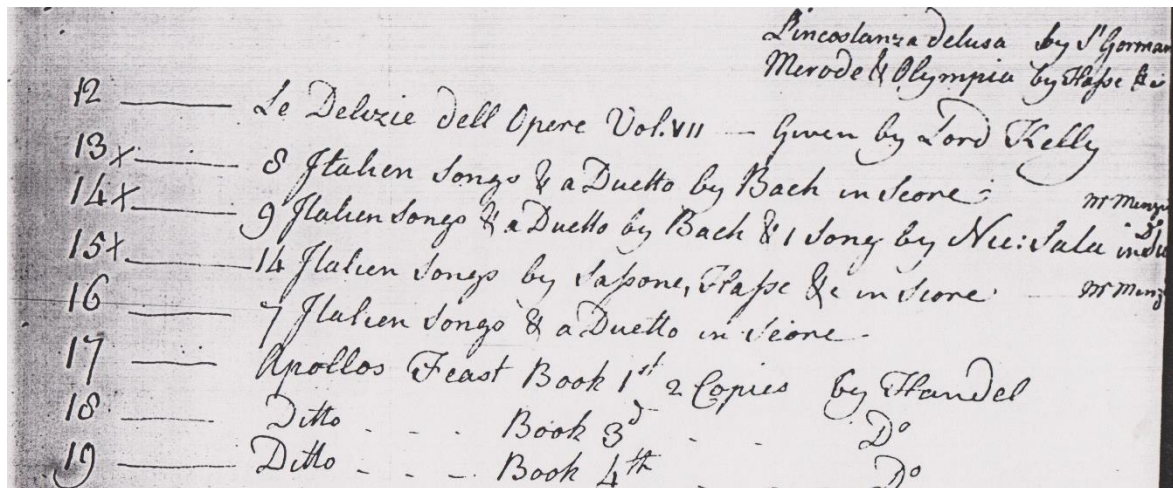 L'incostanza delusa by St Gorman
Merode & Olympia by Hasse &c
12 Le Delizie dell Opere Vol. VII — Given by Lord Kelly
13 x 8 Italien Songs & a Duetto by Bach in Score
14 x 9 Italien Songs & a Duetto by Bach & 1 Song by Nic: Sala in
15 x 14 Italien Songs by Sassone, Hasse &c in Score
16 7 Italien Songs & a Duetto in Score
17 Apollos Feast Book 1st 2 Copies by Handel
18 Ditto - - - Book 3d - - - Do
19 Ditto - - - Book 4th - - - Do